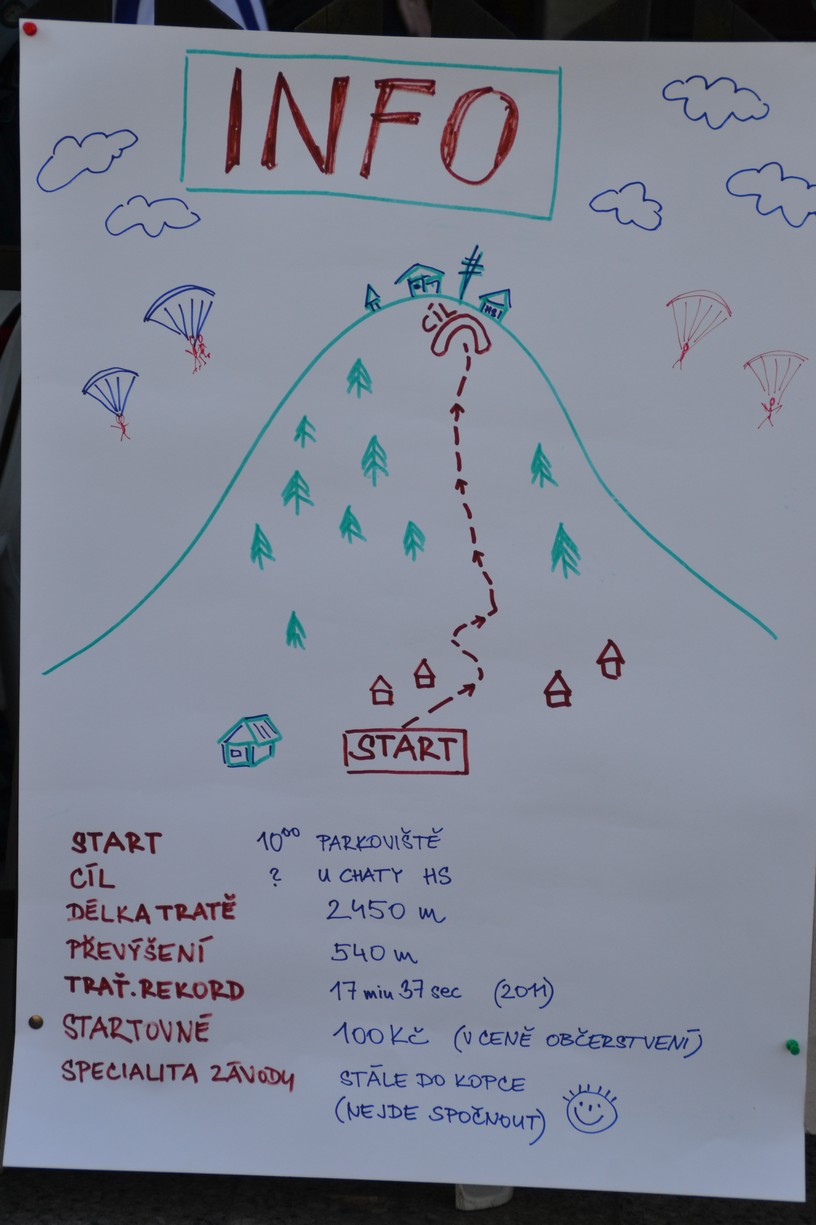 INFO
CÍL
HS
START
START 10⁰⁰ PARKOVIŠTĚ
CÍL ? U CHATY HS
DÉLKA TRATĚ 2450 m
PŘEVÝŠENÍ 540 m
TRAŤ. REKORD 17 min 37 sec (2011)
STARTOVNÉ 100 KČ (V CENĚ OBČERSTVENÍ)
SPECIALITA ZÁVODY STÁLE DO KOPCE
(NEJDE SPOČNOUT)